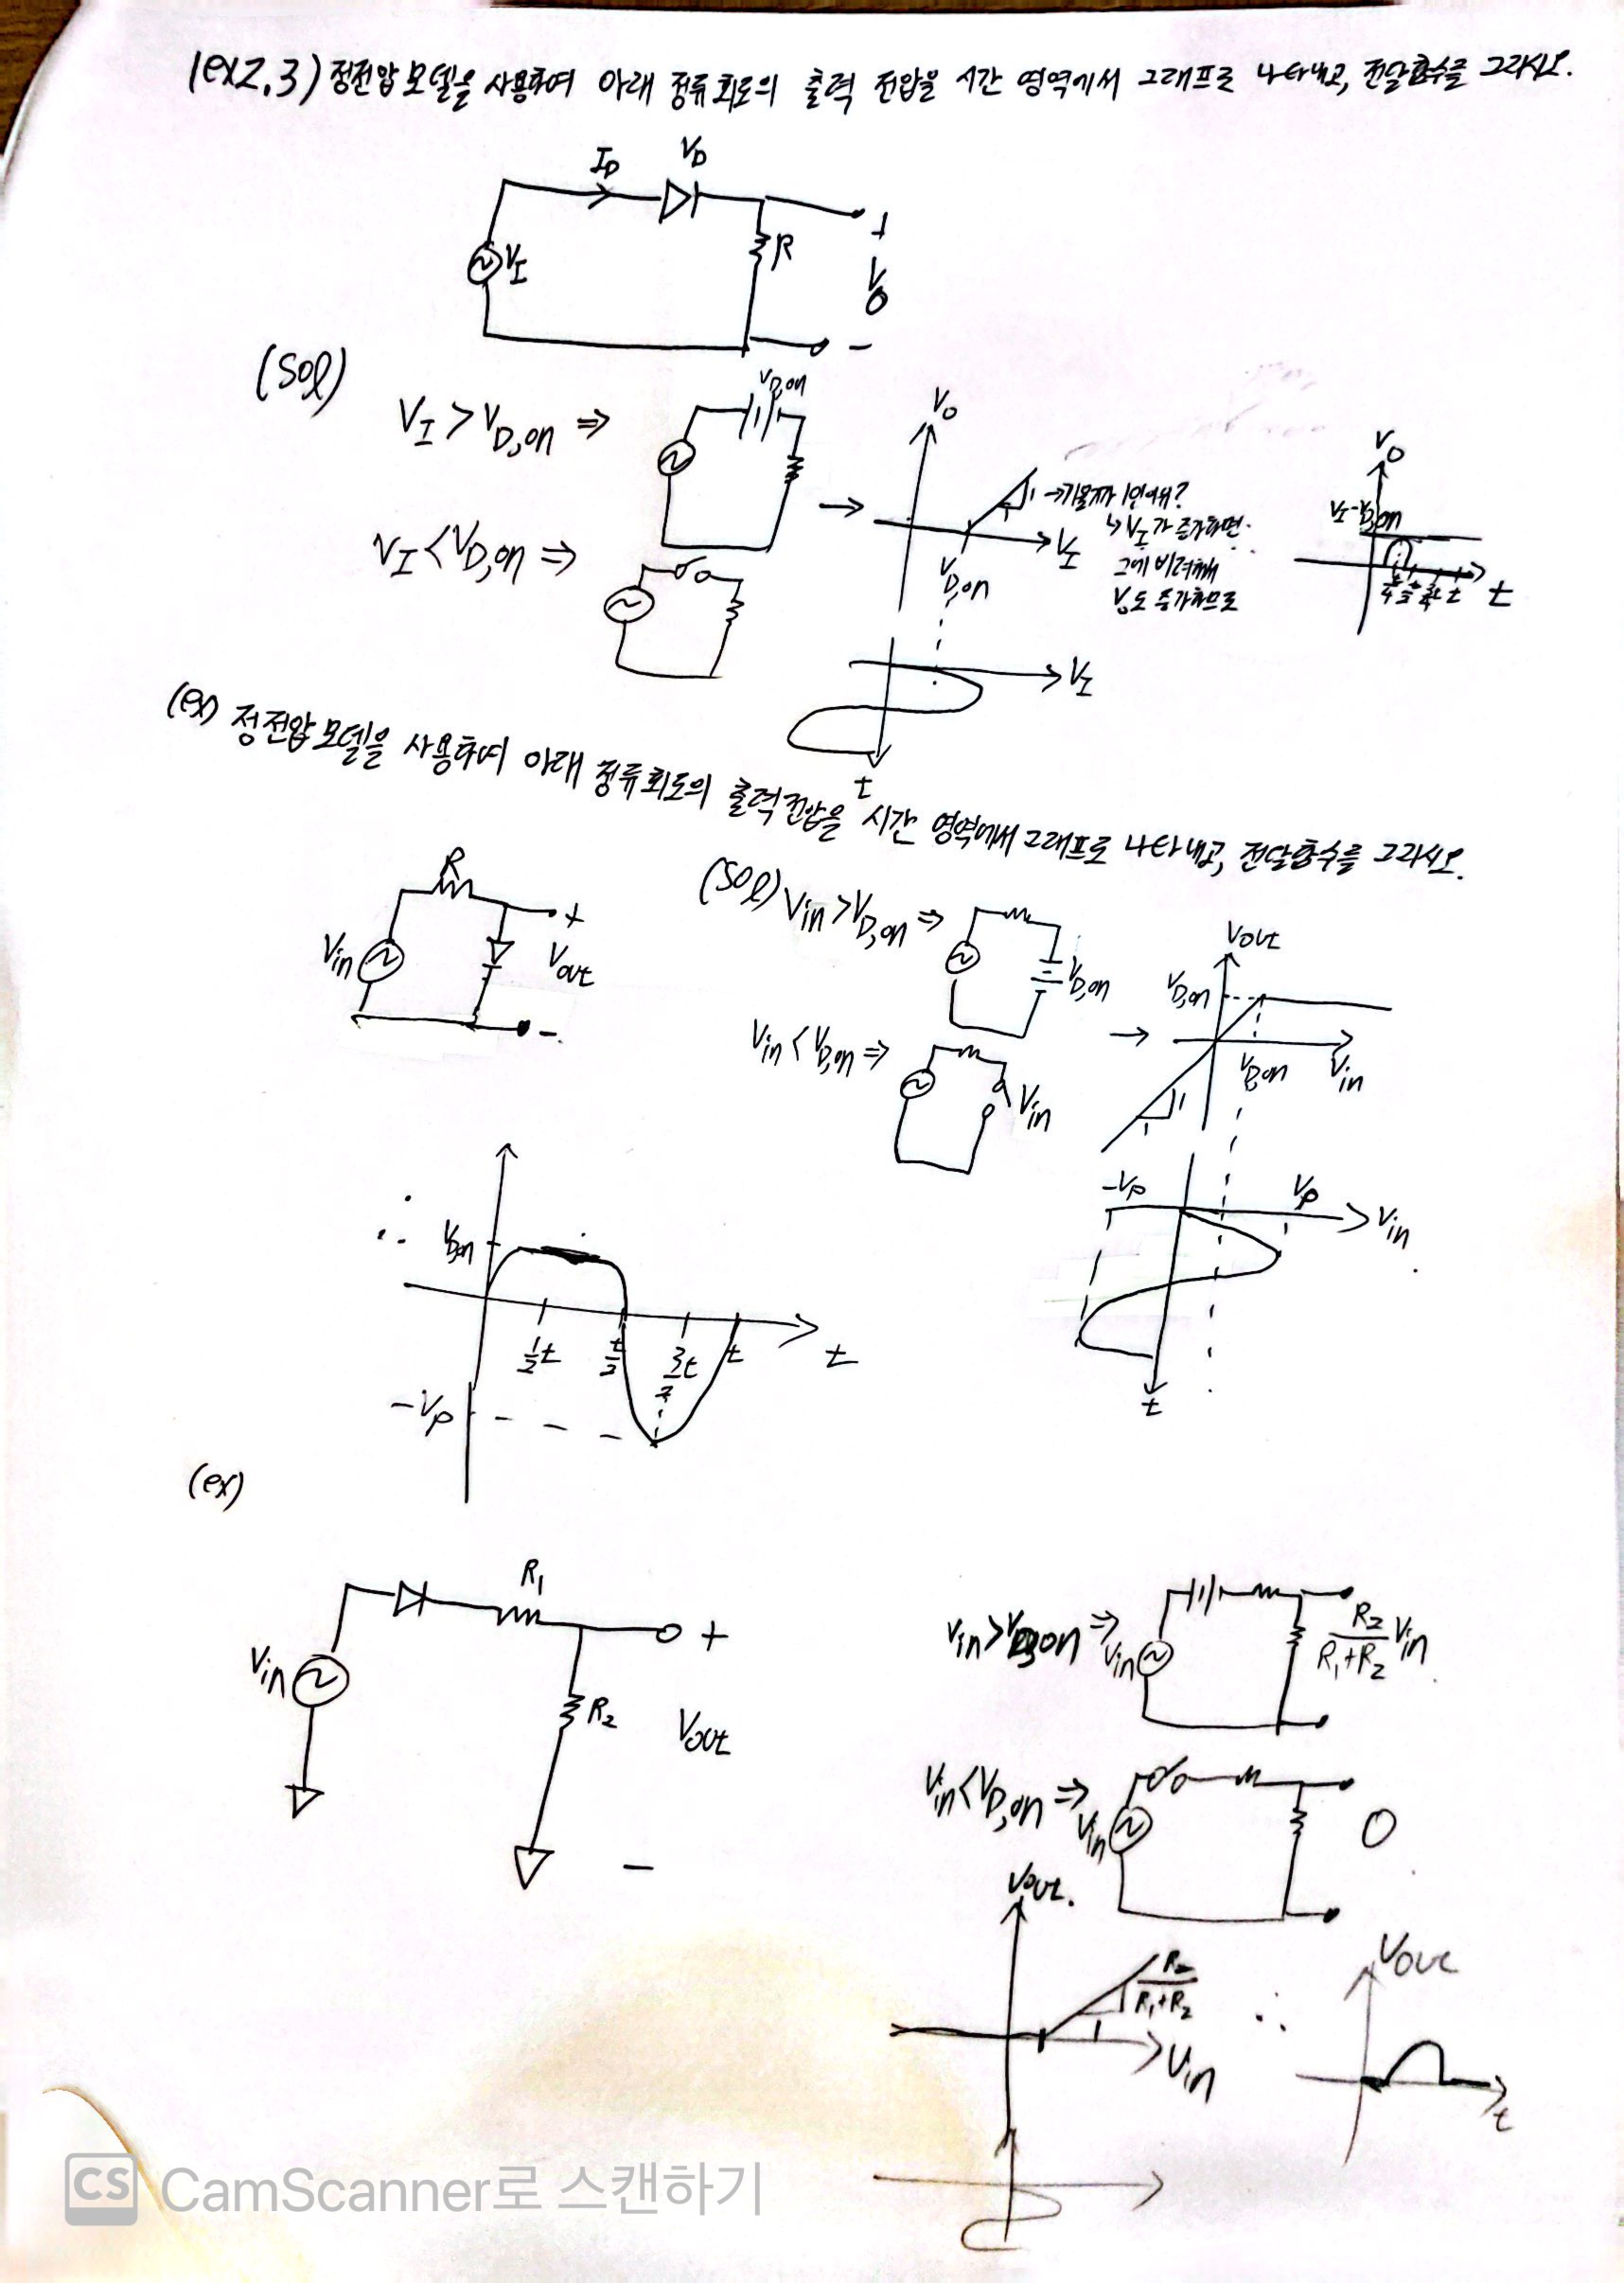 (ex2.3) 정전압 모델을 사용하여 아래 정류회로의 출력 전압을 시간 영역에서 그래프로 나타내고, 전달함수를 그리시오.
I_D V_D
V_I R + V_O -
(Sol)
V_I > V_D,on ⇒ V_D,on
V_I < V_D,on ⇒
→ V_O V_I V_D,on
1 → 기울기가 1인 이유?
↳ V_I가 증가하면
그에 비례해
V_O도 증가하므로
V_O
V_I-V_D,on
t
V_I
t
(ex) 정전압 모델을 사용하여 아래 정류회로의 출력전압을 시간 영역에서 그래프로 나타내고, 전달함수를 그리시오.
R
Vin + Vout -
(Sol) Vin > V_D,on ⇒ V_D,on
Vin < V_D,on ⇒ Vin
→ Vout
V_D,on
V_D,on Vin
1 1
-Vp Vp Vin
t
∴ V_D,on
1/2t t/2 3/2t t t
-Vp
(ex)
R_1
Vin + R_2 Vout -
Vin > V_D,on ⇒ Vin R_2/(R_1+R_2) Vin
Vin < V_D,on ⇒ Vin 0
Vout
R_2/(R_1+R_2)
1
Vin
∴ Vout
t
CS CamScanner로 스캔하기